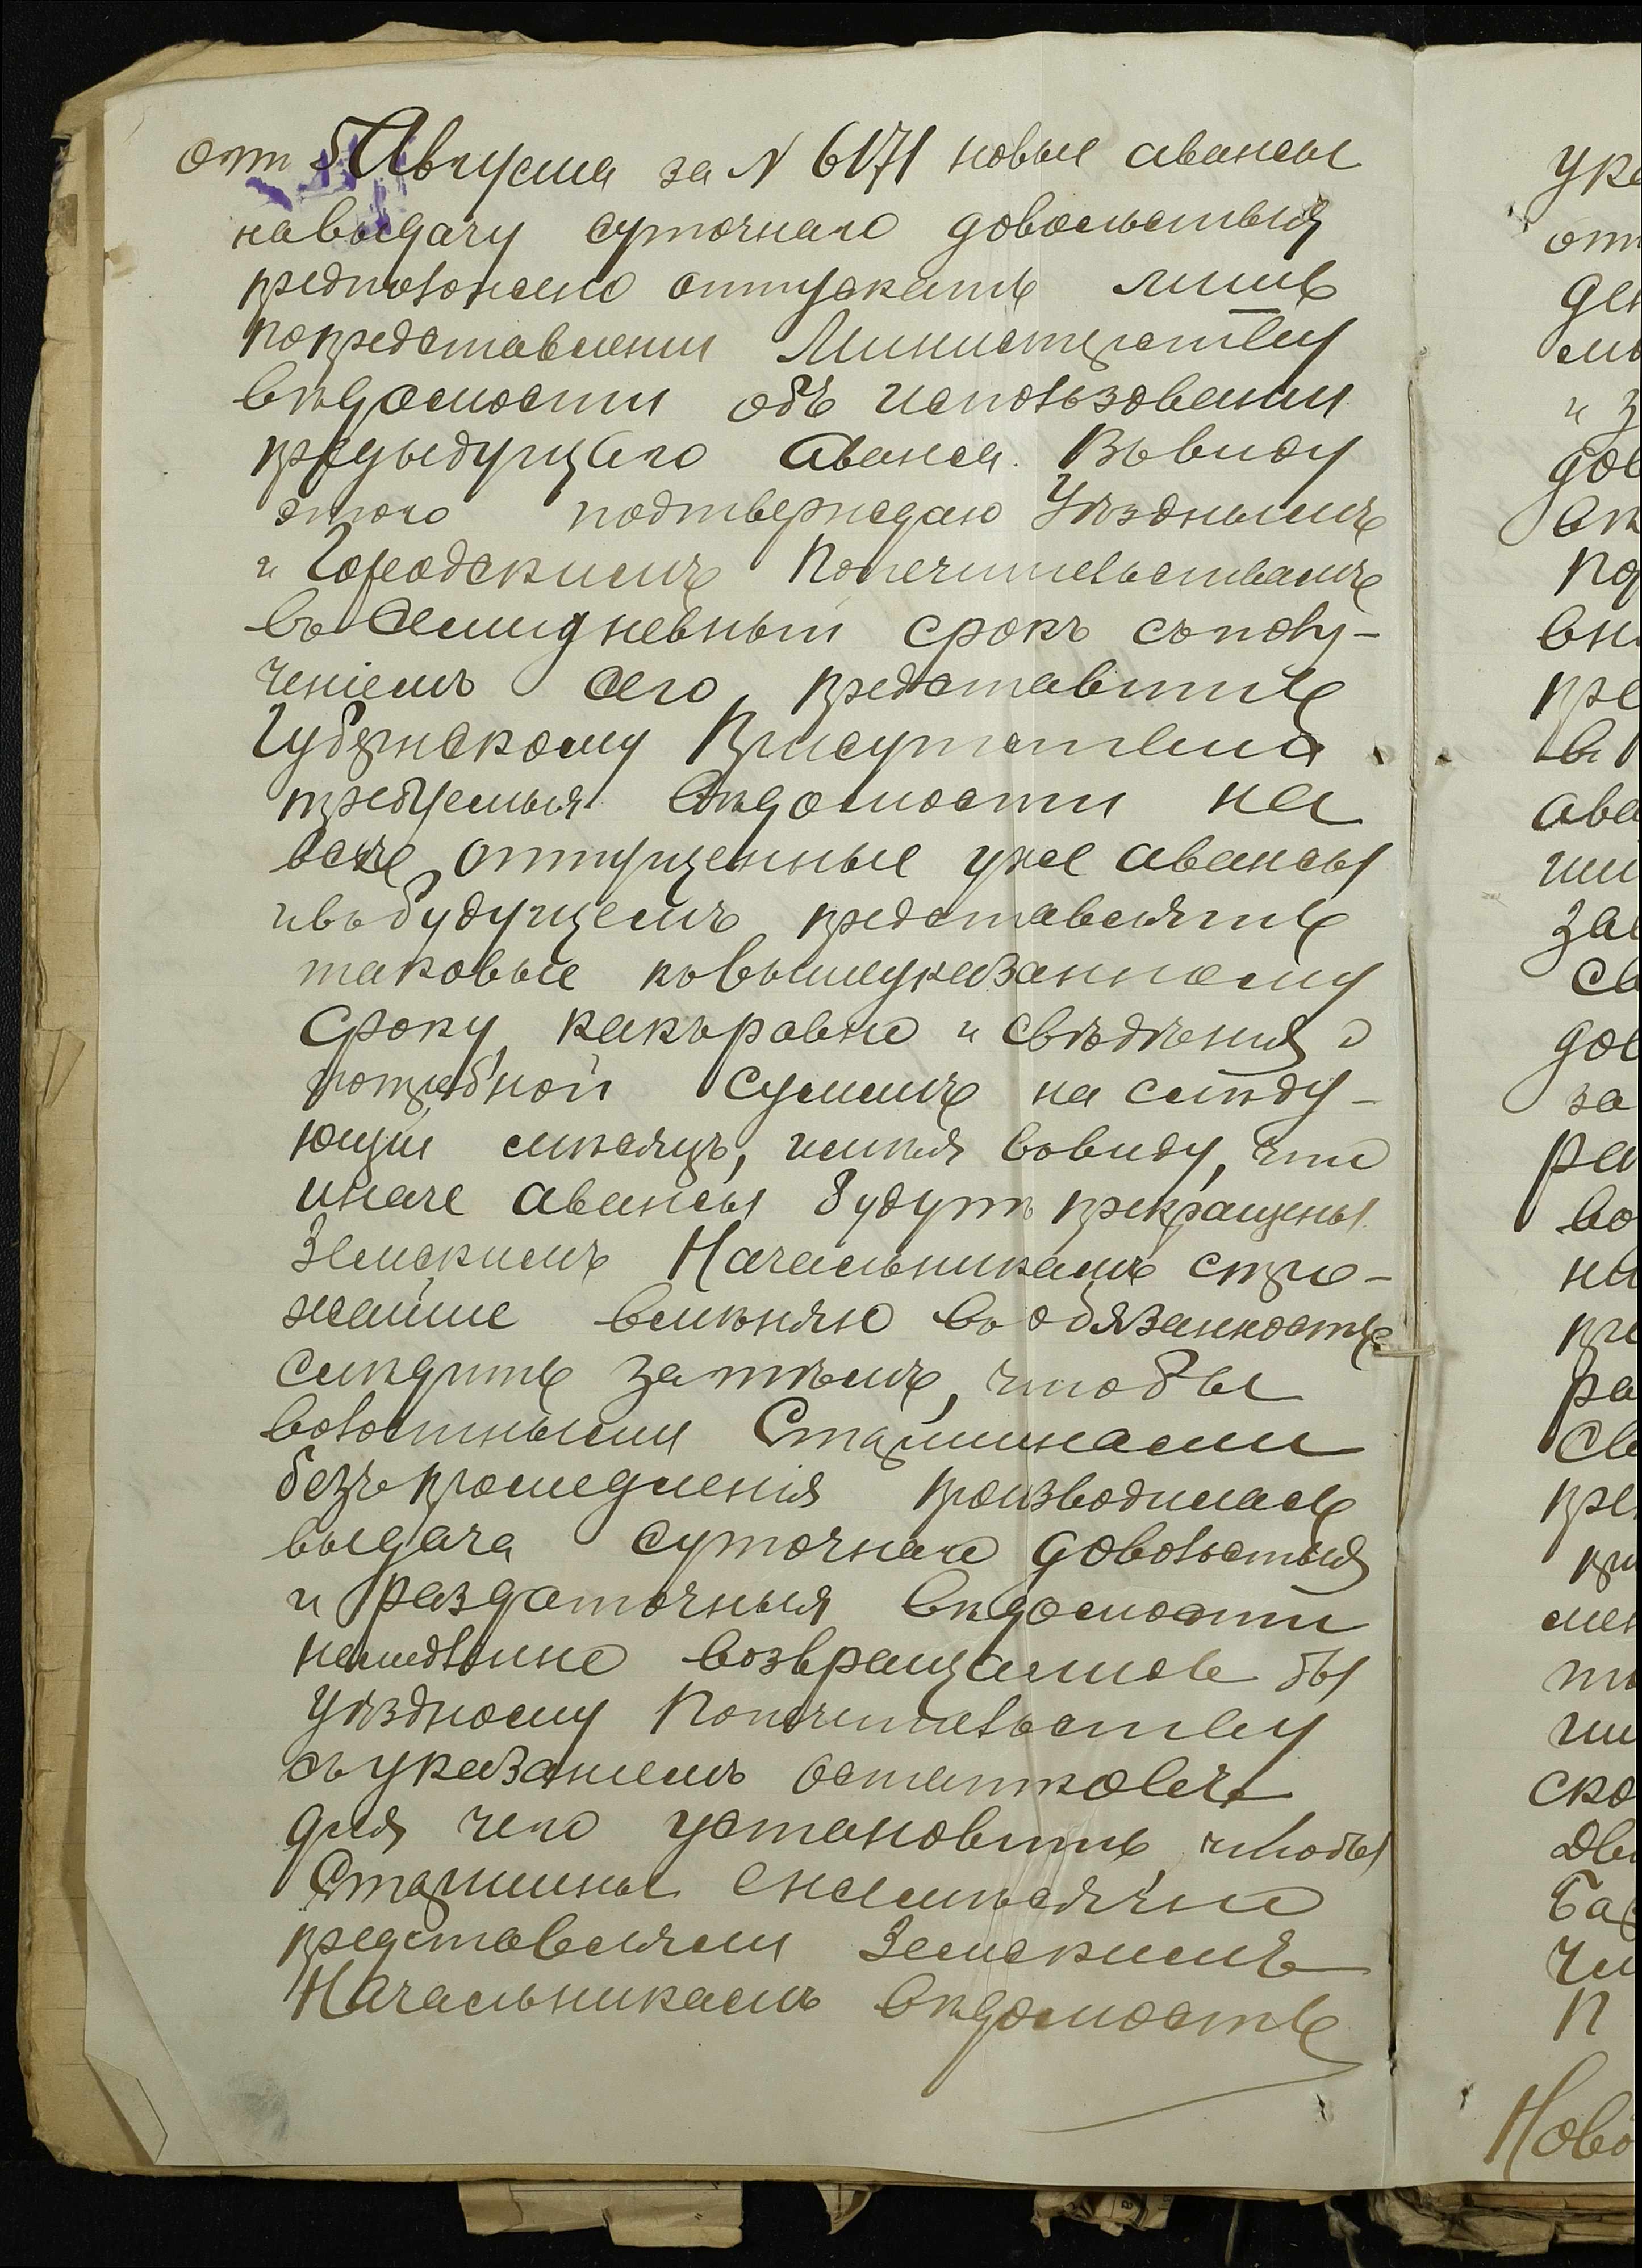 отъ 5 Августа за N 6171 новые авансы
на выдачу суточнаго довольствія
предположено отпускать лишь
по представленіи Министерству
вѣдомости объ использованіи
предыдущаго аванса. Въ виду
этого подтверждаю Уѣзднымъ
и Городскимъ Попечительствамъ
въ семидневный срокъ съ полу-
ченіемъ сего, представить
Губернскому Присутствію
требуемыя вѣдомости на
всѣ отпущенные уже авансы
и въ будущемъ представлять
таковые къ вышеуказанному
сроку, какъ равно и свѣдѣнія о
потребной суммѣ на слѣду-
ющій мѣсяцъ, имѣя въ виду, что
иначе авансы будутъ прекращены.
Земскимъ Начальникамъ стро-
жайше вмѣняю въ обязанность
слѣдить за тѣмъ, чтобы
волостными Старшинами
безъ промедленія производилась
выдача суточнаго довольствія
и раздаточныя вѣдомости
немедленно возвращались бы
Уѣздному Попечительству
съ указаніемъ остатковъ
для чего установить, чтобы
Старшины ежемѣсячно
представляли Земскимъ
Начальникамъ вѣдомость
уке
от
ден
и з
дов
вѣ
по
вн
пре
въ
ава
ши
зав
св
дов
за
ра
во
на
пре
ра
св
пре
при
мен
ско
Два
Ба
П
Ново